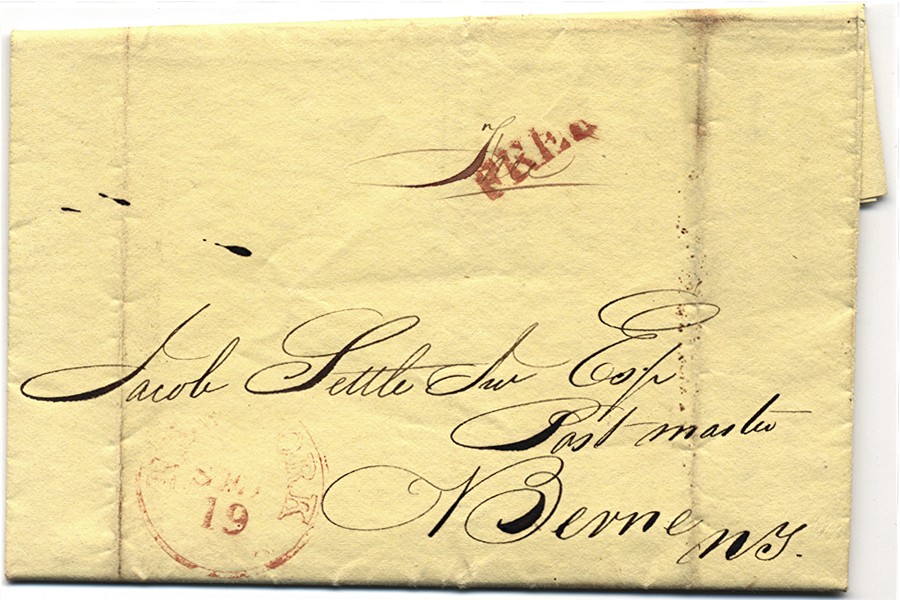 FREE
Jacob Settle Jur Esqr
Post master
Berne
NY.
YORK
19